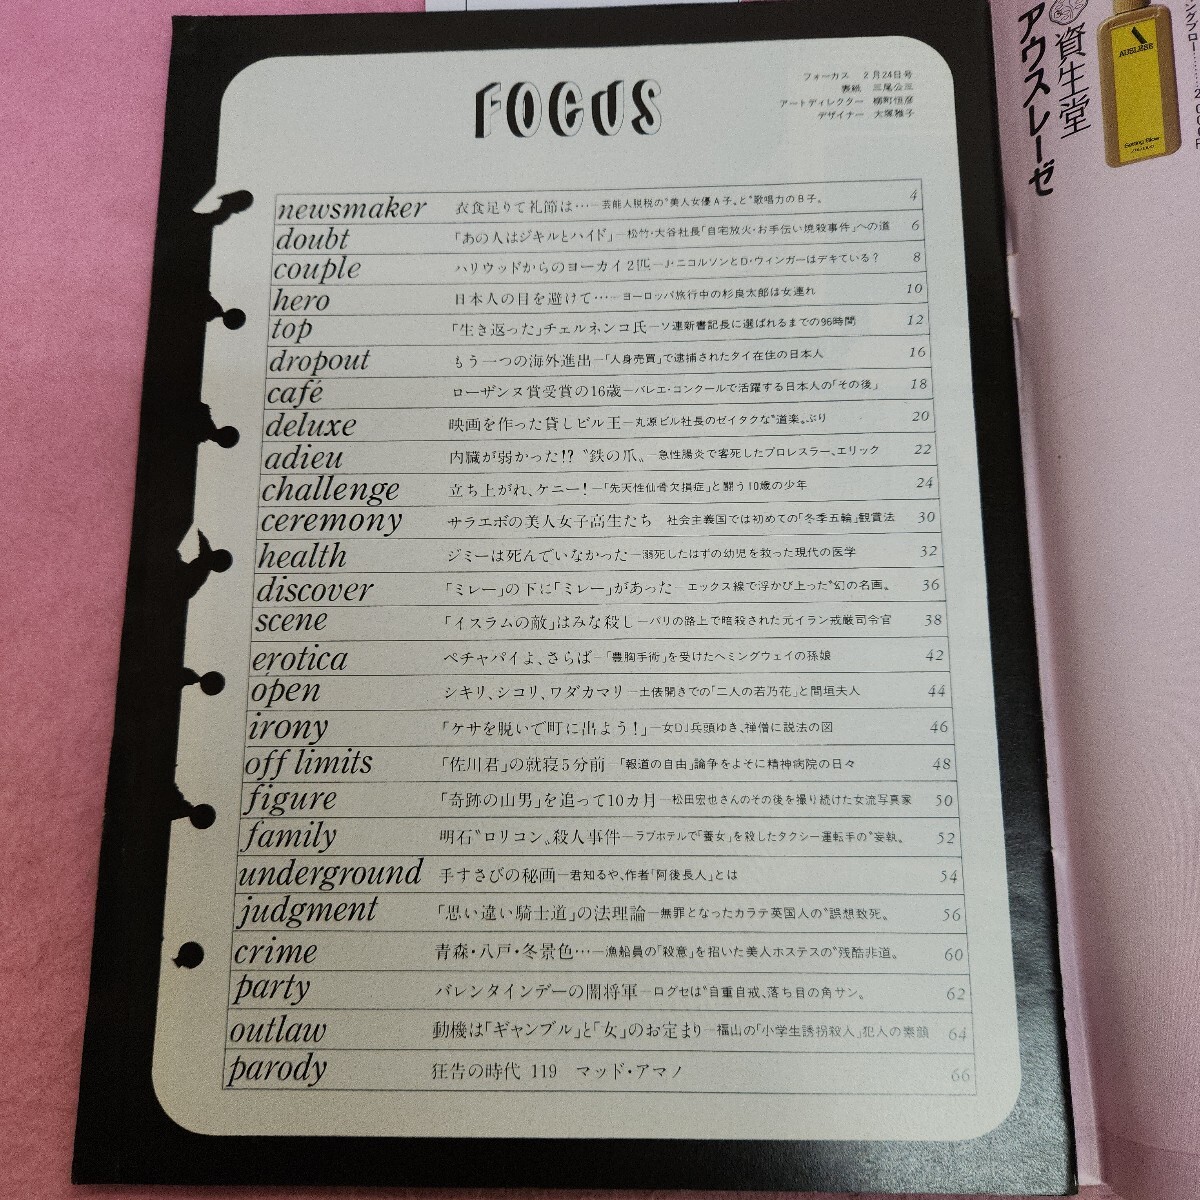 FOCUS
フォーカス 2月24日号
表紙 三尾公三
アートディレクター 柳町恒彦
デザイナー 大塚雅子
newsmaker 衣食足りて礼節は…─芸能人脱税の〝美人女優A子〟と〝歌唱力のB子〟 4
doubt 「あの人はジキルとハイド」─松竹・大谷社長「自宅放火・お手伝い焼殺事件」への道 6
couple ハリウッドからのヨーカイ2匹─J・ニコルソンとD・ウィンガーはデキている? 8
hero 日本人の目を避けて…─ヨーロッパ旅行中の杉良太郎は女連れ 10
top 「生き返った」チェルネンコ氏─ソ連新書記長に選ばれるまでの96時間 12
dropout もう一つの海外進出─「人身売買」で逮捕されたタイ在住の日本人 16
café ローザンヌ賞受賞の16歳─バレエ・コンクールで活躍する日本人の「その後」 18
deluxe 映画を作った貸しビル王─丸源ビル社長のゼイタクな〝道楽〟ぶり 20
adieu 内臓が弱かった!? 〝鉄の爪〟─急性腸炎で客死したプロレスラー、エリック 22
challenge 立ち上がれ、ケニー!─「先天性仙骨欠損症」と闘う10歳の少年 24
ceremony サラエボの美人女子高生たち 社会主義国では初めての「冬季五輪」観賞法 30
health ジミーは死んでいなかった─溺死したはずの幼児を救った現代の医学 32
discover 「ミレー」の下に「ミレー」があった─エックス線で浮かび上った〝幻の名画〟 36
scene 「イスラムの敵」はみな殺し─パリの路上で暗殺された元イラン戒厳司令官 38
erotica ペチャパイよ、さらば─「豊胸手術」を受けたヘミングウェイの孫娘 42
open シキリ、シコリ、ワダカマリ─土俵開きでの「二人の若乃花」と間垣夫人 44
irony 「ケサを脱いで町に出よう!」─女DJ兵頭ゆき、禅僧に説法の図 46
off limits 「佐川君」の就寝5分前─「報道の自由」論争をよそに精神病院の日々 48
figure 「奇跡の山男」を追って10カ月─松田宏也さんのその後を撮り続けた女流写真家 50
family 明石〝ロリコン〟殺人事件─ラブホテルで「養女」を殺したタクシー運転手の〝妄執〟 52
underground 手すさびの秘画─君知るや、作者「阿後長人」とは 54
judgment 「思い違い騎士道」の法理論─無罪となったカラテ英国人の〝誤想致死〟 56
crime 青森・八戸・冬景色…─漁船員の「殺意」を招いた美人ホステスの〝残酷非道〟 60
party バレンタインデーの闇将軍─ログセは〝自重自戒〟落ち目の角サン。 62
outlaw 動機は「ギャンブル」と「女」のお定まり─福山の「小学生誘拐殺人」犯人の素顔 64
parody 狂告の時代 119 マッド・アマノ 66
資生堂
アウスレーゼ
AUSLESE